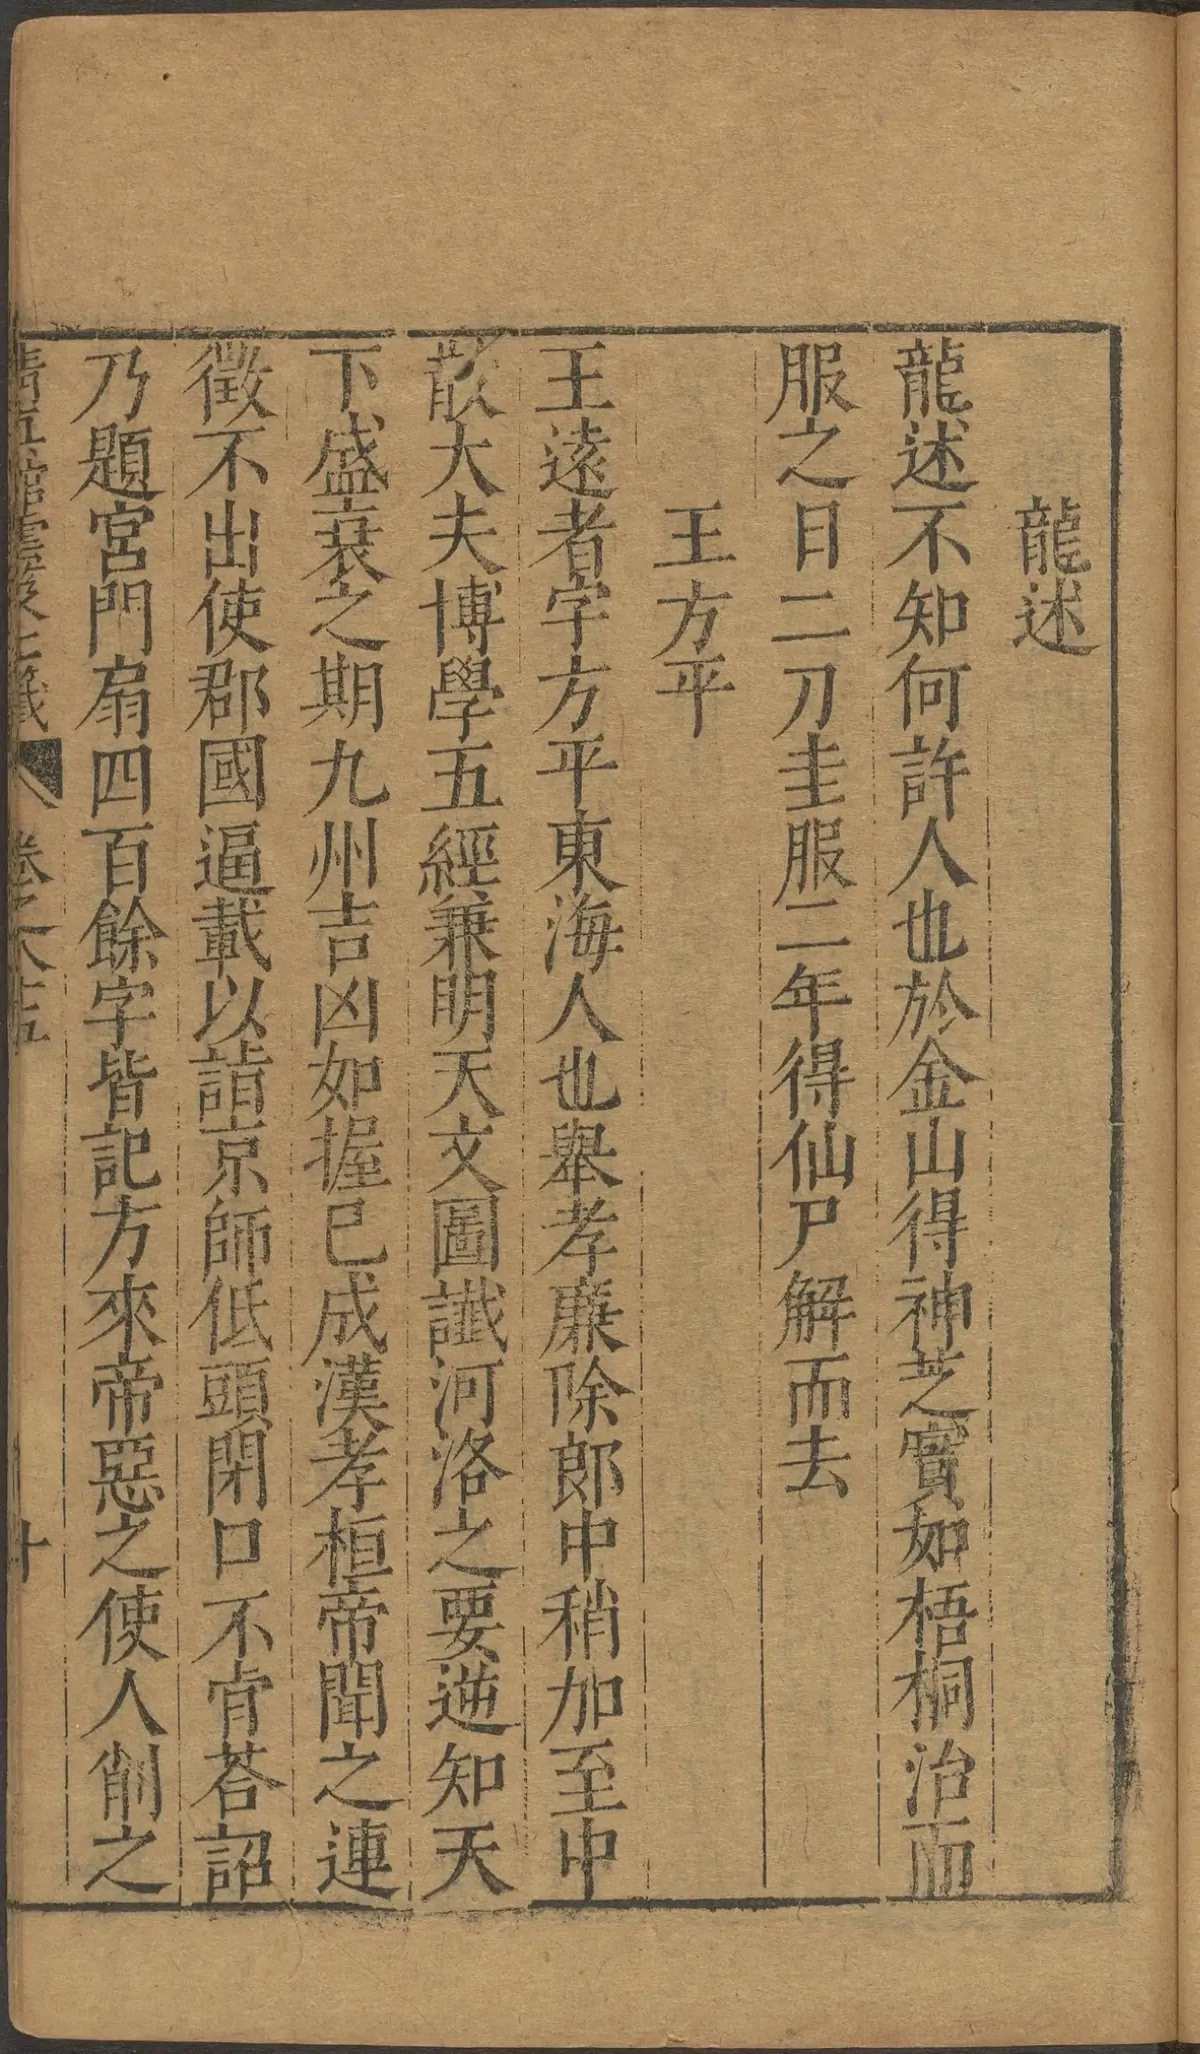 龍述
龍述不知何許人也於金山得神芝實如梧桐治而
服之日二刀圭服二年得仙尸解而去
王方平
王遠者字方平東海人也舉孝廉除郎中稍加至中
散大夫博學五經兼明天文圖讖河洛之要逆知天
下盛衰之期九州吉凶如握已成漢孝桓帝聞之連
徵不出使郡國逼載以詣京師低頭閉口不肯荅詔
乃題宮門扇四百餘字皆記方來帝惡之使人削之
清真館雲笈七籤 卷之八十五 十